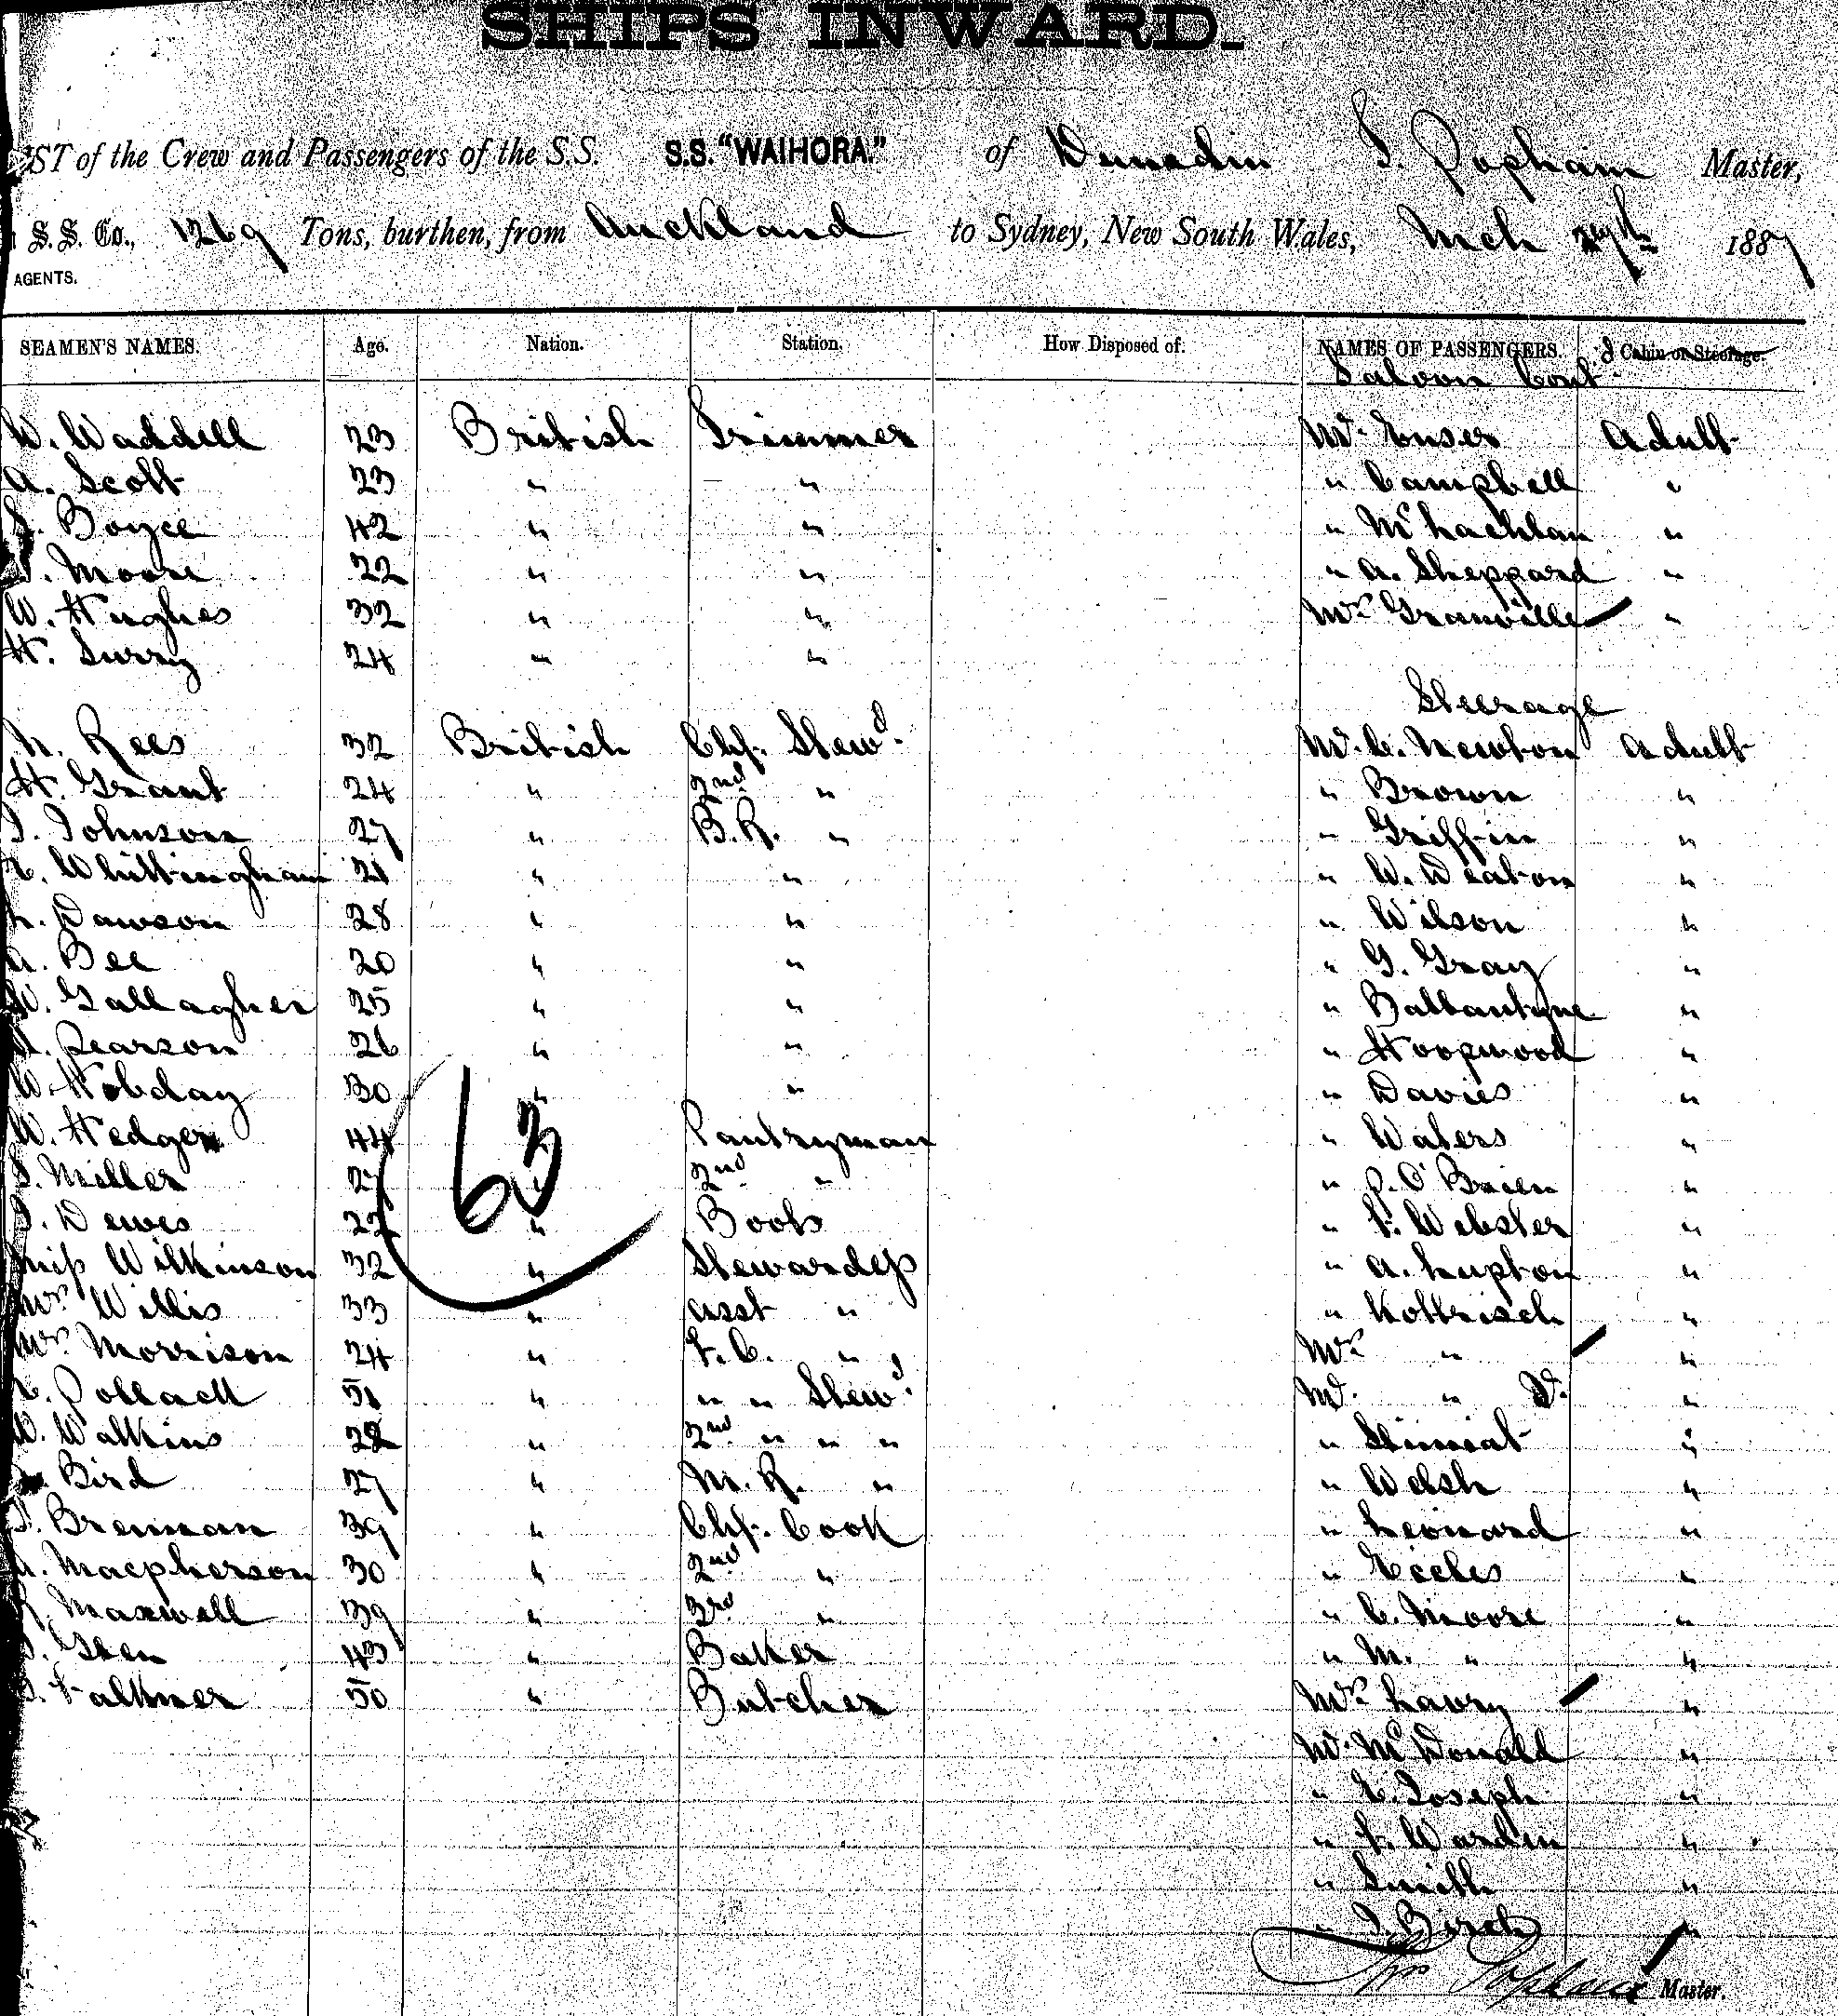 SHIPS INWARD.
of the Crew and Passengers of the S.S. S.S. "WAIHORA." of Dunedin Popham Master,
S.S. Co., 1269 Tons, burthen, from Auckland to Sydney, New South Wales, Mch 1887
AGENTS.
SEAMEN'S NAMES. Age. Nation. Station. How Disposed of. NAMES OF PASSENGERS. Cabin or Steerage.
Saloon Contd
W. Waddell 23 British Trimmer Mr. Adult
A. Scott 23 " " " Campbell "
Boyce 42 " " " McLachlan "
Moore 22 " " " A. Sheppard "
W. Hughes 32 " " Mrs Granville "
H. Surry 24 " "
Steerage
Rees 32 British Chf. Stewd. Mr. C. Newton Adult
H. Grant 24 " 2nd " " Brown "
J. Johnson 27 " B.R. " " Griffin "
Whittingham 21 " " " W. Deaton "
Dawson 28 " " " Wilson "
A. Bee 20 " " " G. Gray "
W. Gallagher 25 " " " Ballantyne "
Pearson 26 " " " Hoopwood "
W. Hobday 30 " " " Davies "
W. Hedger 44 " Pantryman " Waters "
Miller 27 " 2nd " " P. O'Brien "
Dewes 22 " Boots " F. Webster "
Miss Wilkinson 32 " Stewardess " A. Lupton "
Mrs Willis 33 " Asst " " "
Mrs Morrison 24 " F.C. " Mrs " "
Pollack 51 " " " Stewd. Mr. " "
W. Watkins 22 " 2nd " " " " "
Bird 27 " M.R. " " Welsh "
Brennan 39 " Chf. Cook " Leonard "
A. Macpherson 30 " 2nd " " Eccles "
R. Maxwell 39 " 3rd " " C. Moore "
43 " Baker " M. " "
Falkner 50 " Butcher Mrs Lavry "
Mr. McDonald "
" E. Joseph "
" F. Warden "
" Smith "
" J. Birch "
63
Popham Master.